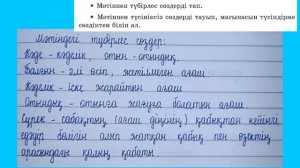 • Мәтіннен түбірлес сөздерді тап.
• Мәтіннен түсініксіз сөздерді тауып, мағынасын түсіндірме
сөздіктен біліп ал.
Мәтіндегі түбірлес сөздер:
Кәде - кәделік, отын - отындық.
Балғын - әлі өсіп, жетілмеген ағаш
Кәделік - іске жарайтын ағаш
Отындық - отынға жағуға болатын ағаш
Сүрек - сабақтың (ағаш діңінің) қабықтан кейінгі
өзкур бөлігін алып жатқан қабық пен өзектің
арасындағы қалың қабаты.